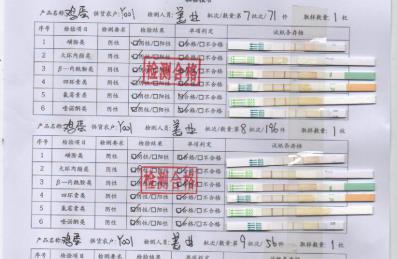 产品名称 鸡蛋 供货农户 Y001 检测人员: 批次/数量:第7批次/71件 取样数量: 1枚
序号 检验项目 检测要求 检验结果 单项判定 试纸条存档
1 磺胺类 阴性 ☑阴性/☐阳性 ☑合格/☐不合格
2 大环内酯类 阴性 ☑阴性/☐阳性 ☑合格/☐不合格
3 β-内酰胺类 阴性 ☑阴性/☐阳性 ☑合格/☐不合格
4 四环素类 阴性 ☑阴性/☐阳性 ☑合格/☐不合格
5 氟苯尼类 阴性 ☑阴性/☐阳性 ☑合格/☐不合格
6 喹诺酮类 阴性 ☑阴性/☐阳性 ☑合格/☐不合格
检测合格
产品名称 鸡蛋 供货农户 Y001 检测人员: 批次/数量:第8批次/196件 取样数量: 1枚
序号 检验项目 检测要求 检验结果 单项判定 试纸条存档
1 磺胺类 阴性 ☑阴性/☐阳性 ☑合格/☐不合格
2 大环内酯类 阴性 ☑阴性/☐阳性 ☑合格/☐不合格
3 β-内酰胺类 阴性 ☑阴性/☐阳性 ☑合格/☐不合格
4 四环素类 阴性 ☑阴性/☐阳性 ☑合格/☐不合格
5 氟苯尼类 阴性 ☑阴性/☐阳性 ☑合格/☐不合格
6 喹诺酮类 阴性 ☑阴性/☐阳性 ☑合格/☐不合格
检测合格
产品名称 鸡蛋 供货农户 Y001 检测人员: 批次/数量:第9批次/56件 取样数量: 1枚